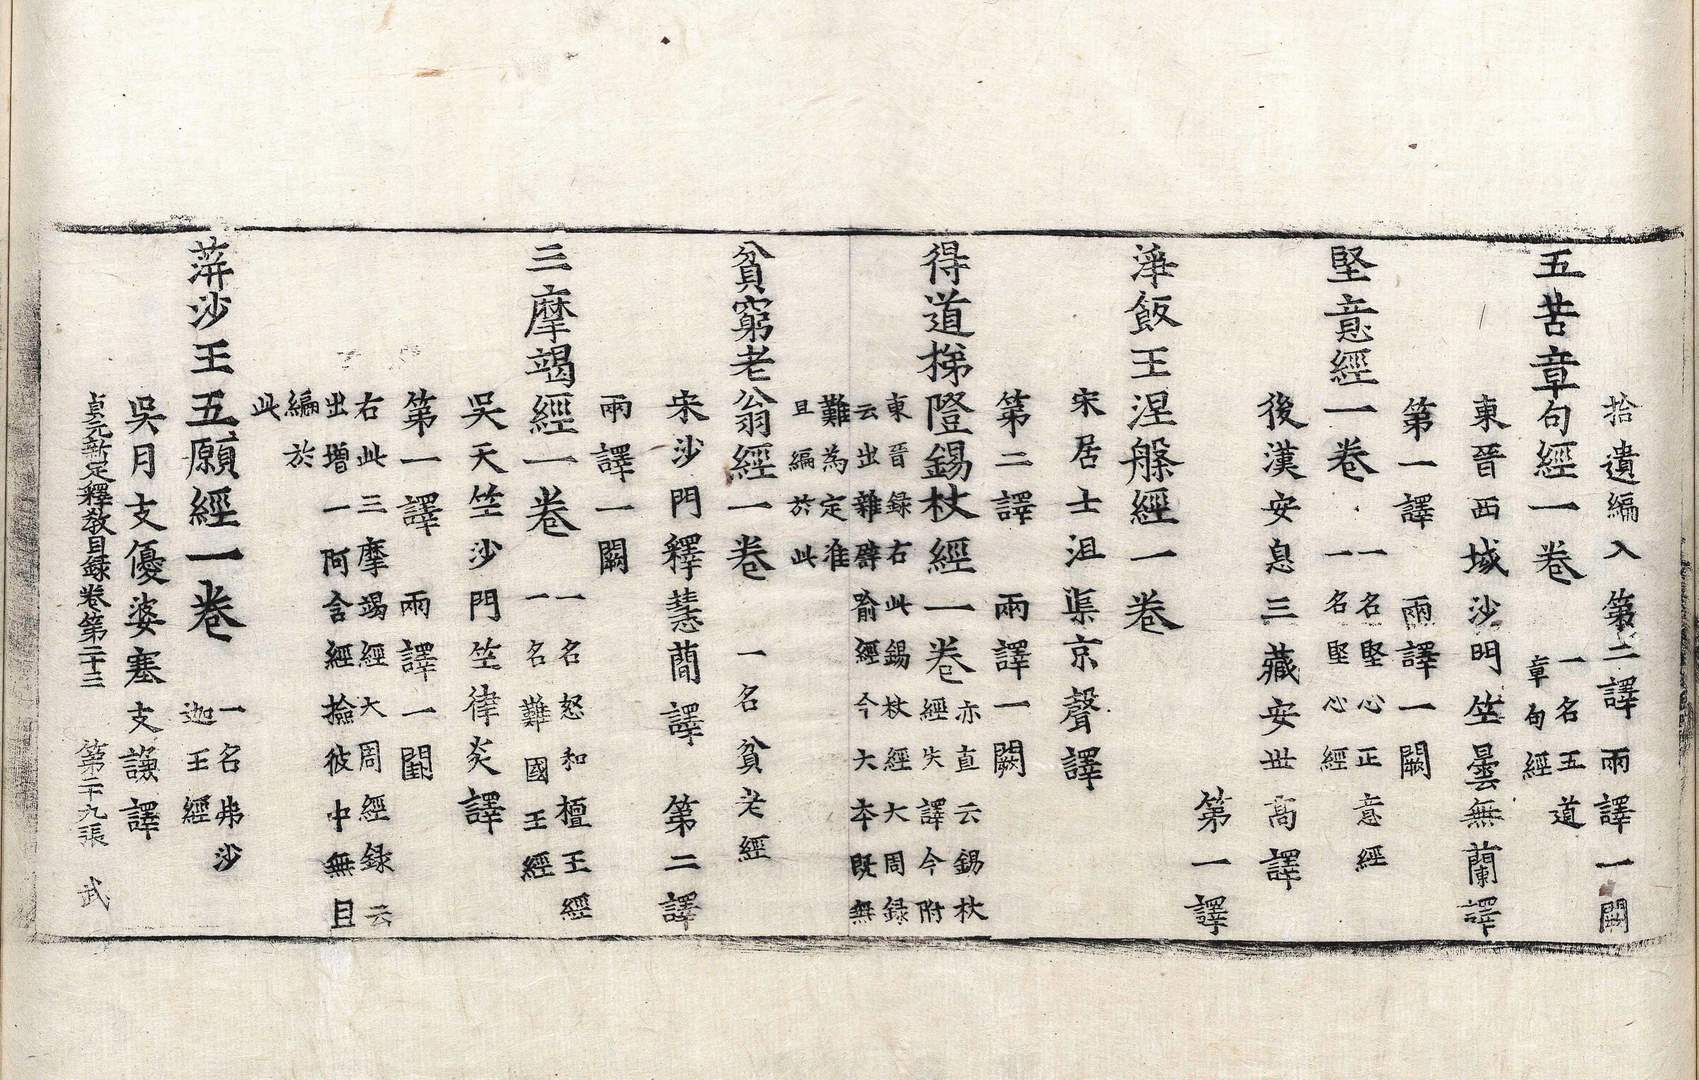 拾遺編入第二譯兩譯一闕
五苦章句經一卷一名五道章句經
東晉西域沙門竺曇無蘭譯
第一譯兩譯一闕
堅意經一卷一名堅心正意經一名堅心經
後漢安息三藏安世高譯
第一譯
淨飯王涅槃經一卷
宋居士沮渠京聲譯
第二譯兩譯一闕
得道梯隥錫杖經一卷亦直云錫杖經失譯今附
東晉録右此錫杖經大周録
云出雜譬喻經今大本既無
難為定准
且編於此
貧窮老翁經一卷一名貧老經
宋沙門釋慧蕑譯第二譯
兩譯一闕
三摩竭經一卷一名怒和檀王經一名難國王經
吳天竺沙門竺律炎譯
第一譯兩譯一闕
右此三摩竭經大周經録云
出增一阿含經撿彼中無且
編於
此
蓱沙王五願經一卷一名弗沙迦王經
吳月支優婆塞支謙譯
貞元新定釋教目録卷第二十三 第二十九張 武